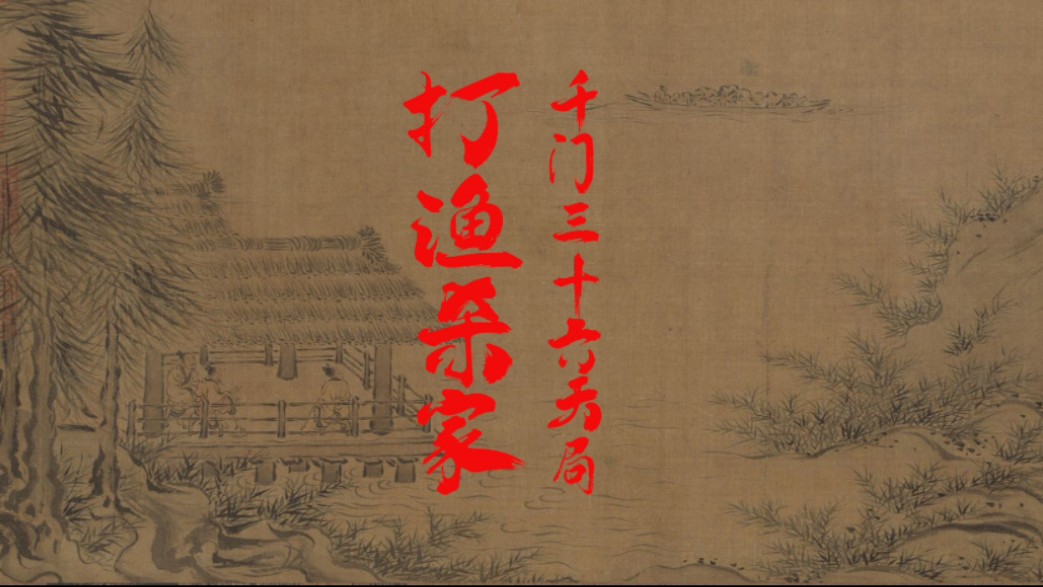 千门三十六天局
打渔杀家